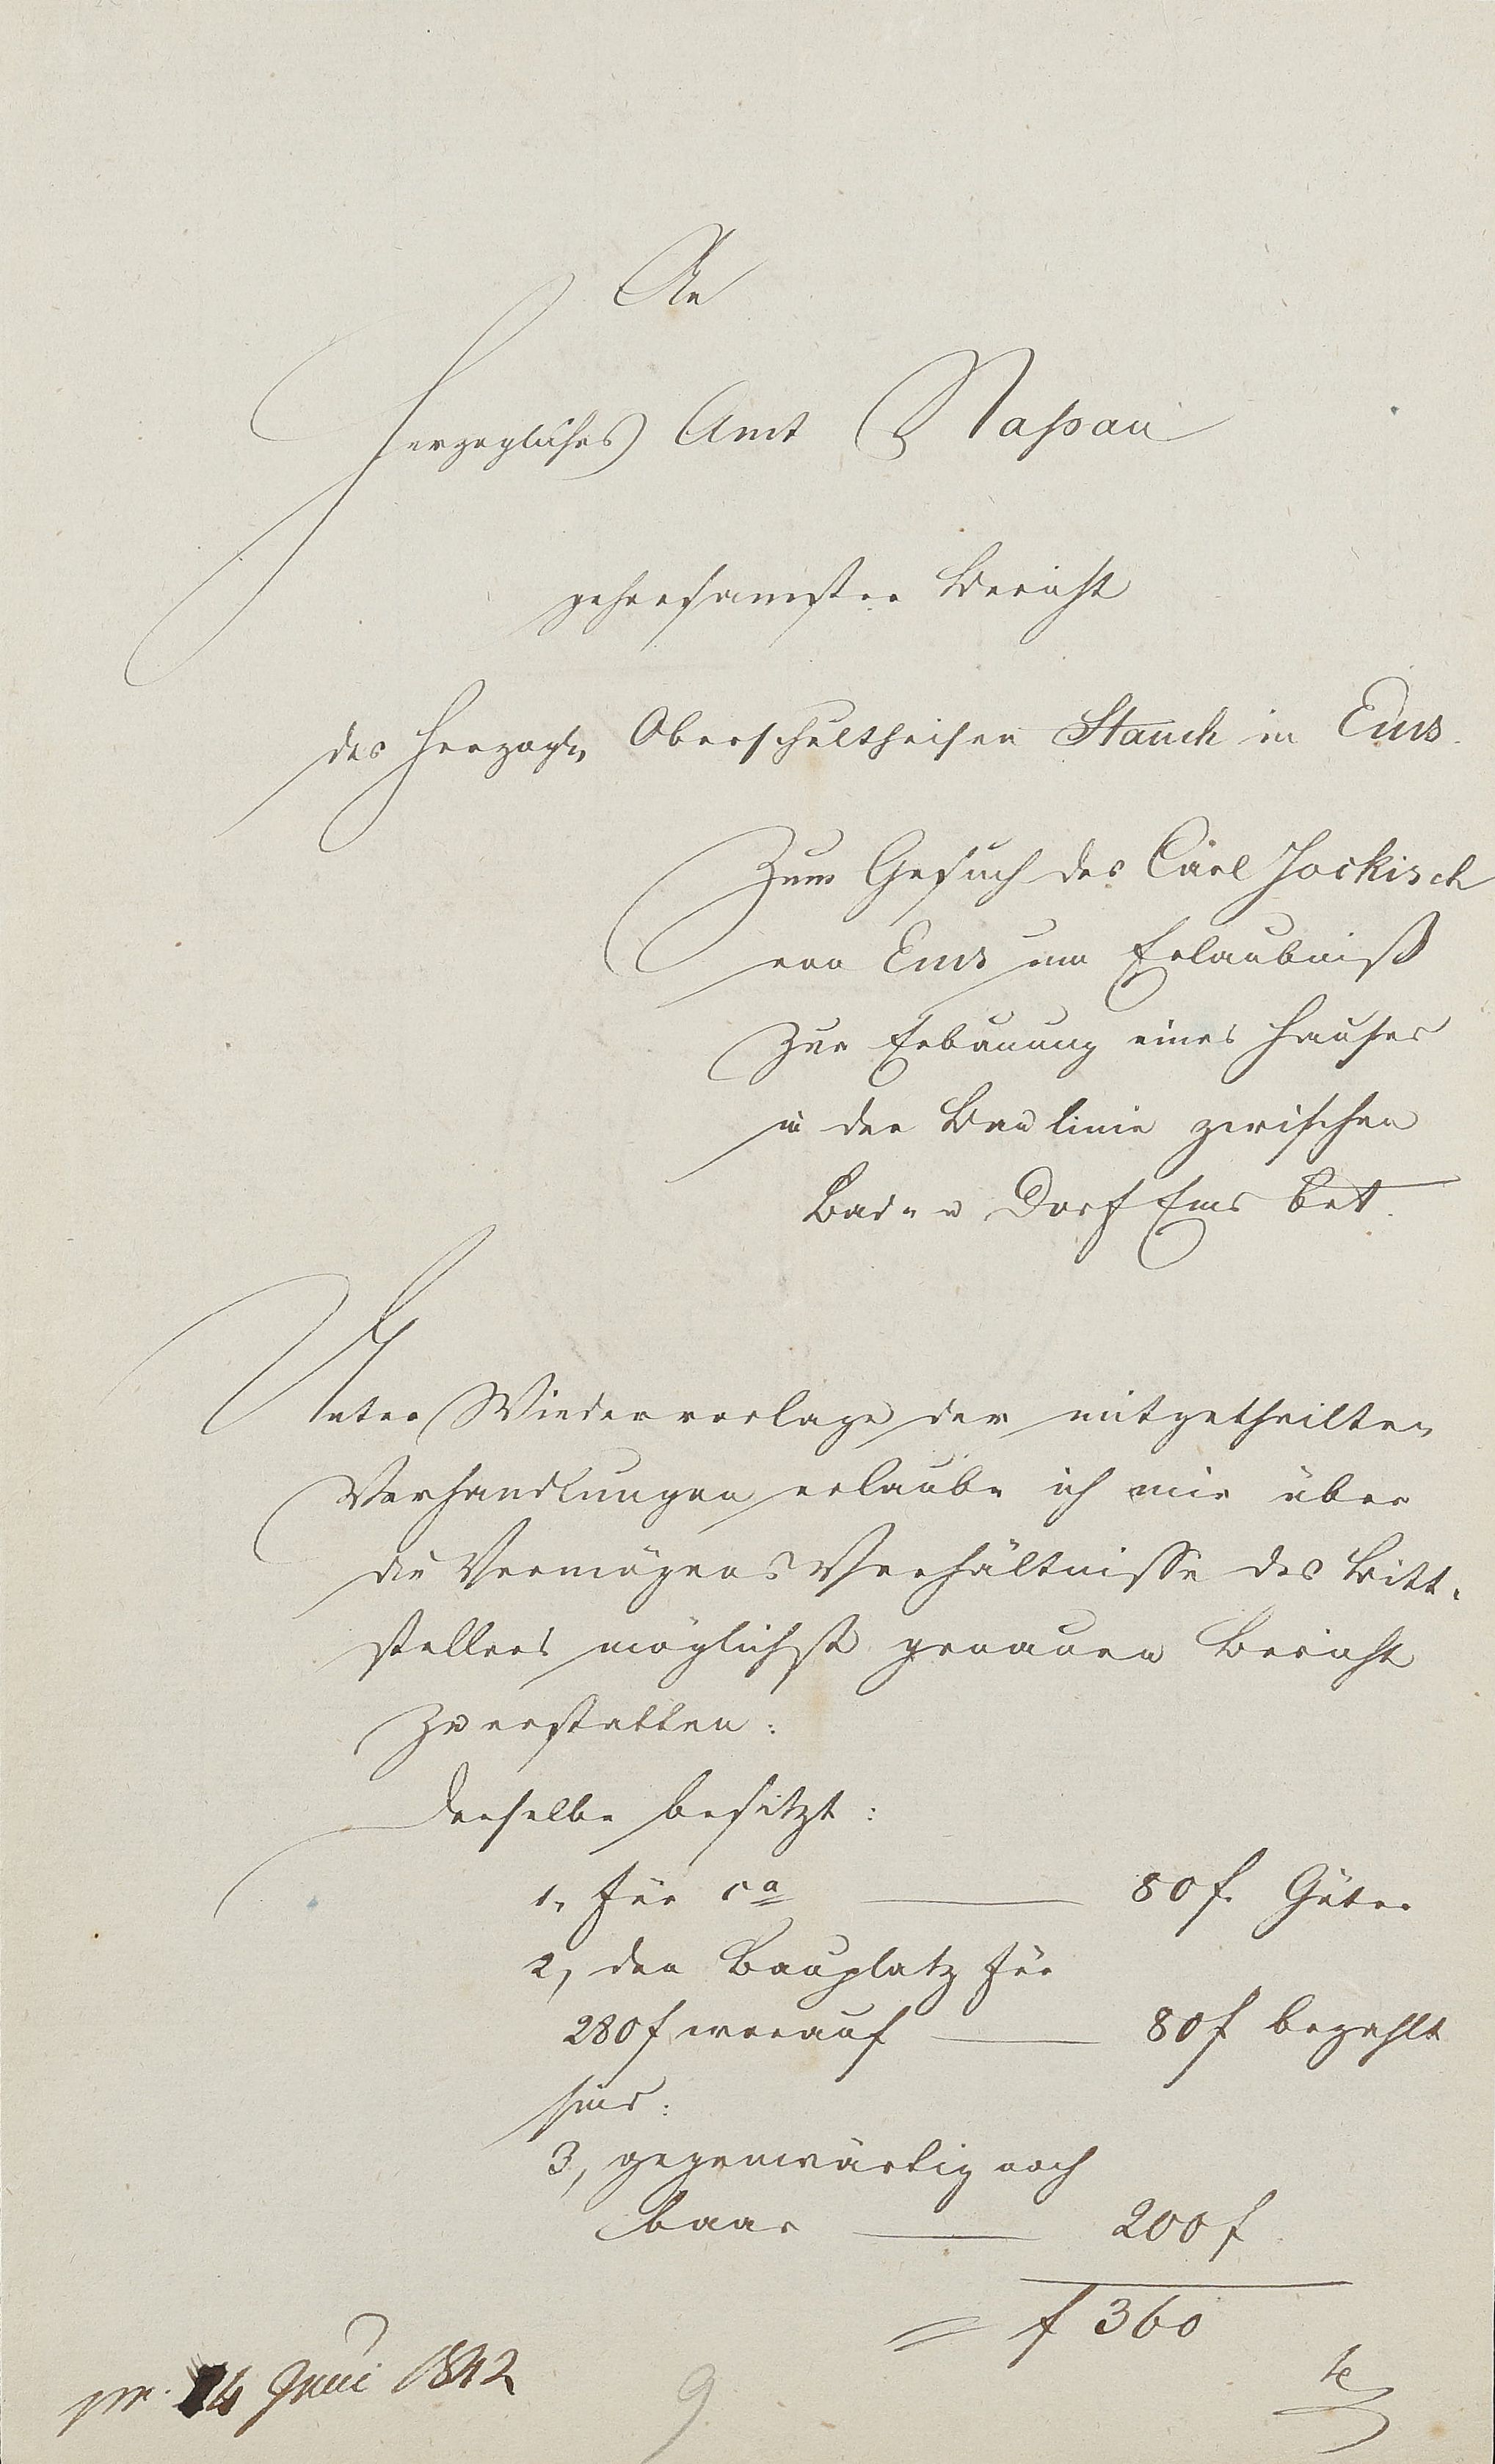 An
Herzogliches Amt Naßau
gehorsamster Bericht
des Herzogl. Oberschultheisen Stauch in Ems.
Zum Gesuch des Carl Jockisch
von Ems um Erlaubniß
zur Erbauung eines Hauses
in der Baulinie zwischen
Bad- u Dorf Ems bet.
Unter Wiedervorlage der mitgetheilten
Verhandlungen erlaube ich mir über
die Vermögens Verhältnisse des Bitt-
stellers möglichst genauen Bericht
zu erstatten:
Derselbe besitzt:
1, für ca — 80 f. Güter
2, den Bauplatz für
280 f worauf — 80 f bezahlt
sind:
3, gegenwärtig noch
baar — 200 f
= f 360
pr. 14 Juni 1842
9